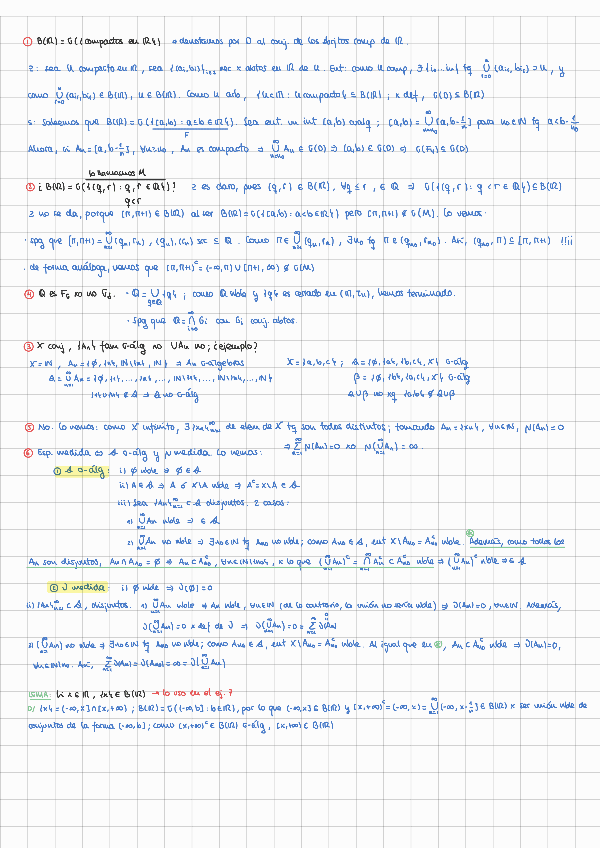 ① B(ℝ) = σ({compactos en ℝ}) → denotamos por D al conj. de los ...tos comp de ℝ.
⊇: sea K compacto en ℝ, sea {(ai, bi)}i∈I rec x abtos en ℝ de K. Ent: como K comp, ∃ {i0...in} tq ∪(ai, bi) ⊃ K, y
como ∪(ai, bi) ∈ B(ℝ), K ∈ B(ℝ). Como K arb, {K⊂ℝ : K compacto} ⊆ B(ℝ); x def, σ(D) ⊆ B(ℝ)
⊆: Sabemos que B(ℝ) = σ({(a,b) : a<b ∈ ℝ}). Sea ent. un int (a,b) cualq; [a,b) = ∪[a, b-1/n] para n0∈ℕ tq a<b-1/n0
F
Ahora, si An = [a, b-1/n], ∀n≥n0, An es compacto ⇒ ∪An ∈ σ(D) ⇒ (a,b) ∈ σ(D) ⇒ σ(F) ⊆ σ(D)
lo llamamos M
② ¿B(ℝ) = σ({(q,r) : q,r ∈ ℚ})? ⊇ es claro, pues (q,r) ∈ B(ℝ), ∀q≤r, ∈ ℚ ⇒ σ({(q,r) : q<r ∈ ℚ}) ⊆ B(ℝ)
q<r
⊇ no se da, porque [π, π+1) ∈ B(ℝ) al ser B(ℝ) = σ({[a,b) : a<b ∈ ℝ}) pero [π, π+1) ∉ σ(M). Lo vemos:
· spg que [π, π+1) = ∪(qn, rn), (qn), (rn) suc ⊆ ℚ. Como π ∈ ∪(qn, rn), ∃n0 tq π ∈ (qn0, rn0). Así, (qn0, π) ⊆ [π, π+1) !!¡¡
· de forma análoga, vemos que [π, π+1)ᶜ = (-∞, π) ∪ [π+1, ∞) ∉ σ(M)
④ ℚ es Fσ xo no Gδ. · ℚ = ∪{q}; como ℚ nble y {q} es cerrado en (ℝ, τu), hemos terminado.
q∈ℚ
· spg que ℚ = ∩Gi con Gi conj. abtos.
③ X conj, {An} fam σ-alg no ∪An no; ¿ejemplo?
X = ℕ, An = {∅, {n}, ℕ\{n}, ℕ} ⇒ An σ-álgebras X = {a,b,c}; A = {∅, {a}, {b,c}, X} σ-alg
A = ∪An = {∅, {1}, ..., {n}, ..., ℕ\{1}, ..., ℕ\{n}, ..., ℕ} B = {∅, {b}, {a,c}, X} σ-alg
{1}∪{n} ∉ A ⇒ A no σ-alg A∪B no xq {a,b} ∉ A∪B
⑤ No. Lo vemos: como X infinito, ∃{xn} de elem de X tq son todos distintos; tomando An = {xn}, ∀n∈ℕ, μ(An) = 0
⇒ Σμ(An) = 0 xo μ(∪An) = ∞.
⑥ Esp. medida ⇔ A σ-alg y μ medida. Lo vemos:
① A σ-alg: i) ∅ nble ⇒ ∅ ∈ A
ii) A ∈ A ⇒ A o X\A nble ⇒ Aᶜ = X\A ∈ A
iii) sea {An} ⊂ A disjuntos. 2 casos:
1) ∪An nble ⇒ ∈ A
2) ∪An no nble ⇒ ∃n0∈ℕ tq An0 no nble; como An0 ∈ A, ent X\An0 = An0ᶜ nble. Además, como todos los
An son disjuntos, An ∩ An0 = ∅ ⇒ An ⊂ An0ᶜ, ∀n∈ℕ\{n0}, x lo que (∪An)ᶜ = ∩Anᶜ ⊂ An0ᶜ nble ⇒ (∪An)ᶜ nble ⇒ ∈ A
② ν medida: i) ∅ nble ⇒ ν(∅) = 0
ii) {An} ⊂ A, disjuntos. 1) ∪An nble ⇒ An nble, ∀n∈ℕ (de lo contrario, la unión no sería nble) ⇒ ν(An) = 0, ∀n∈ℕ. Además,
ν(∪An) = 0 x def de ν ⇒ ν(∪An) = 0 = Σν(An)
2) (∪An) no nble ⇒ ∃n0∈ℕ tq An0 no nble; como An0 ∈ A, ent X\An0 = An0ᶜ nble. Al igual que en, An ⊂ An0ᶜ nble ⇒ ν(An) = 0,
∀n∈ℕ\n0. Así, Σν(An) = ν(An0) = ∞ = ν(∪An)
LEMA: Si x ∈ ℝ, {x} ∈ B(ℝ) → lo uso en el ej. 7
D/ {x} = (-∞, x] ∩ [x, +∞); B(ℝ) = σ({(-∞, b] : b∈ℝ}), por lo que (-∞, x] ∈ B(ℝ) y [x, +∞)ᶜ = (-∞, x) = ∪(-∞, x-1/n] ∈ B(ℝ) x ser unión nble de
conjuntos de la forma (-∞, b]; como [x, +∞)ᶜ ∈ B(ℝ) σ-alg, [x, +∞) ∈ B(ℝ)